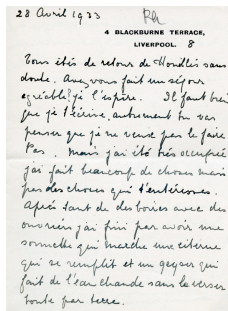 28 Avril 1933
4 BLACKBURNE TERRACE,
LIVERPOOL. 8
Vous êtes de retour de Hondlés sans
doute. Avez vous fait un séjour
agréable? j'e l'espère. Il faut bien
que je t'écrive, autrement tu vas
penser que je ne veuse pas le faire
Pas. Mais j'ai été très occupée
j'ai fait beaucoup de choses mais
pas des choses qui t'intéresses.
Après tant de des boires avec des
ouvriers j'ai fini par avoir une
sonnette qui marche une citerne
qui se remplit et un geyser qui
fait de l'eau chaude sans la verser
toute par terre.